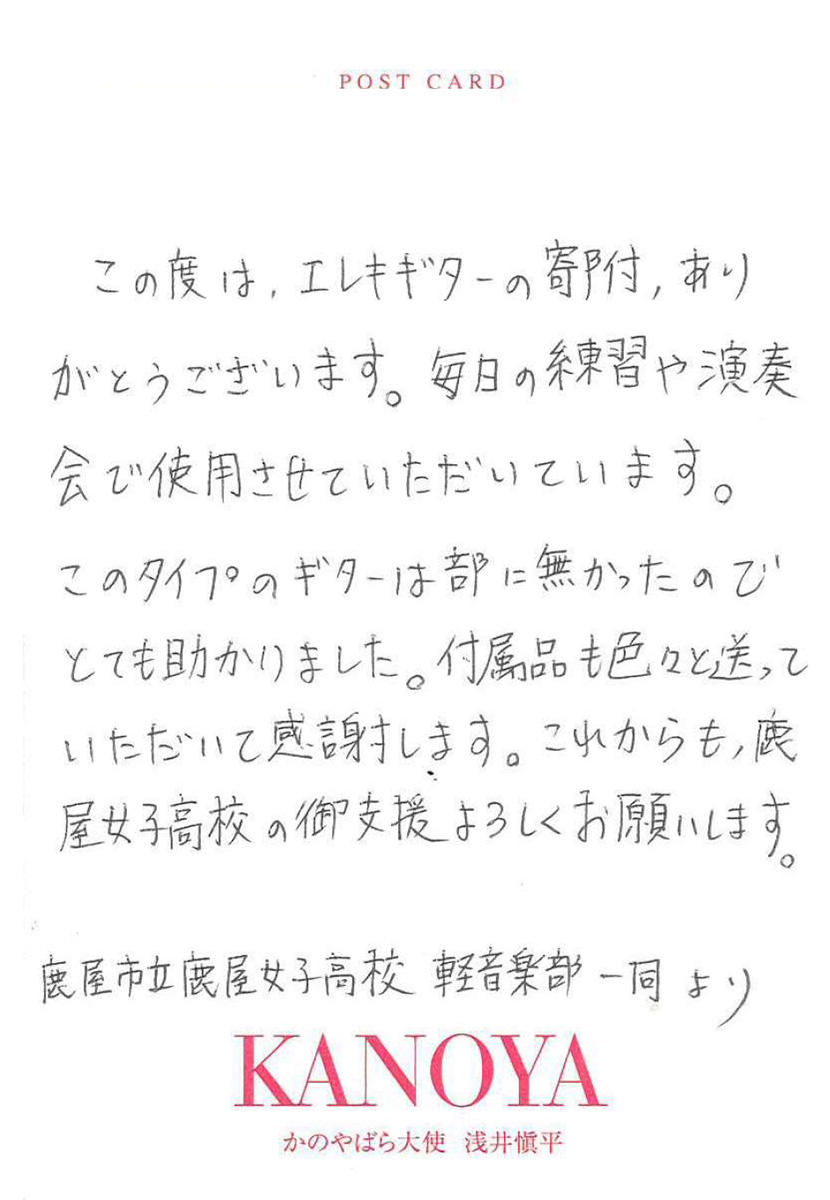 POST CARD
この度は,エレキギターの寄附,あり
がとうございます。毎日の練習や演奏
会で使用させていただいています。
このタイプのギターは部に無かったので
とても助かりました。付属品も色々と送って
いただいて感謝します。これからも,鹿
屋女子高校の御支援よろしくお願いします。
鹿屋市立鹿屋女子高校 軽音楽部 一同 より
KANOYA
かのやばら大使 浅井愼平